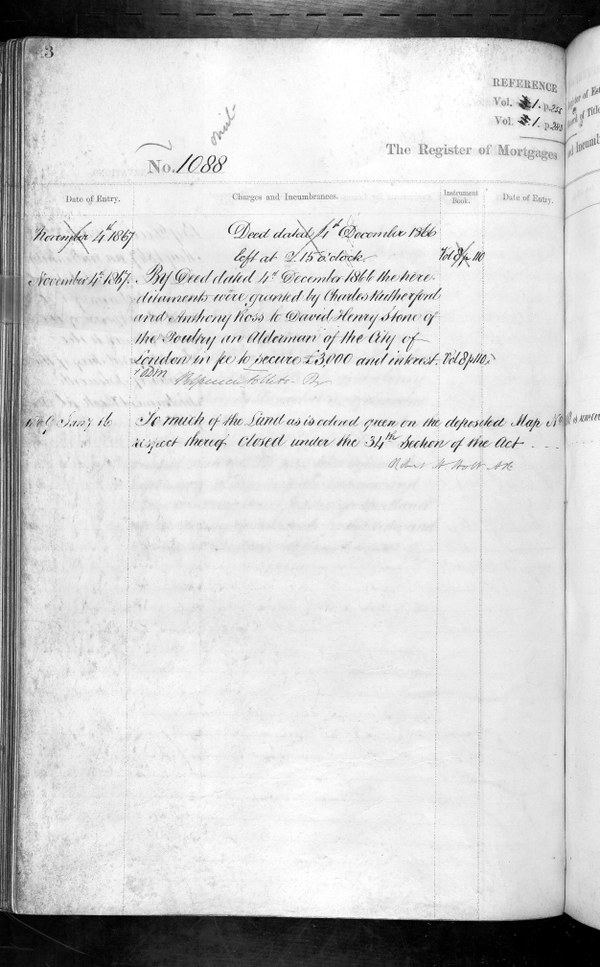 3
REFERENCE
Vol. 1. p.
Vol. 1. p.
The Register of Mortgages
No. 1088
Date of Entry.
Charges and Incumbrances.
Instrument Book.
Date of Entry.
November 4th 1867
Deed dated 4th December 1866
left at 2.15 o'clock
Vol 8 p 110
November 4th 1867.
By Deed dated 4th December 1866 the here-
ditaments were granted by Charles Rutherford
and Anthony Ross to David Henry Stone of
the Poultry an Alderman of the City of
London in fee to secure £3,000 and interest. Vol 8 p 110.
Jany 16
So much of the Land as is colored green on the deposited Map No
respect thereof. Closed under the 34th Section of the Act